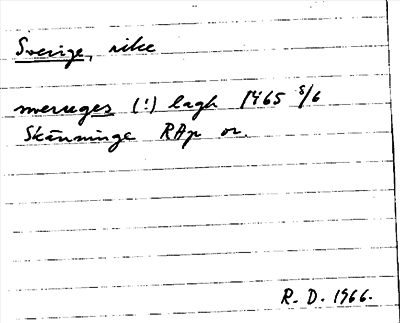 Sverige, rike
swerieges (!) lagh 1465 8/6
Skänninge RAp or.
R. D. 1966.